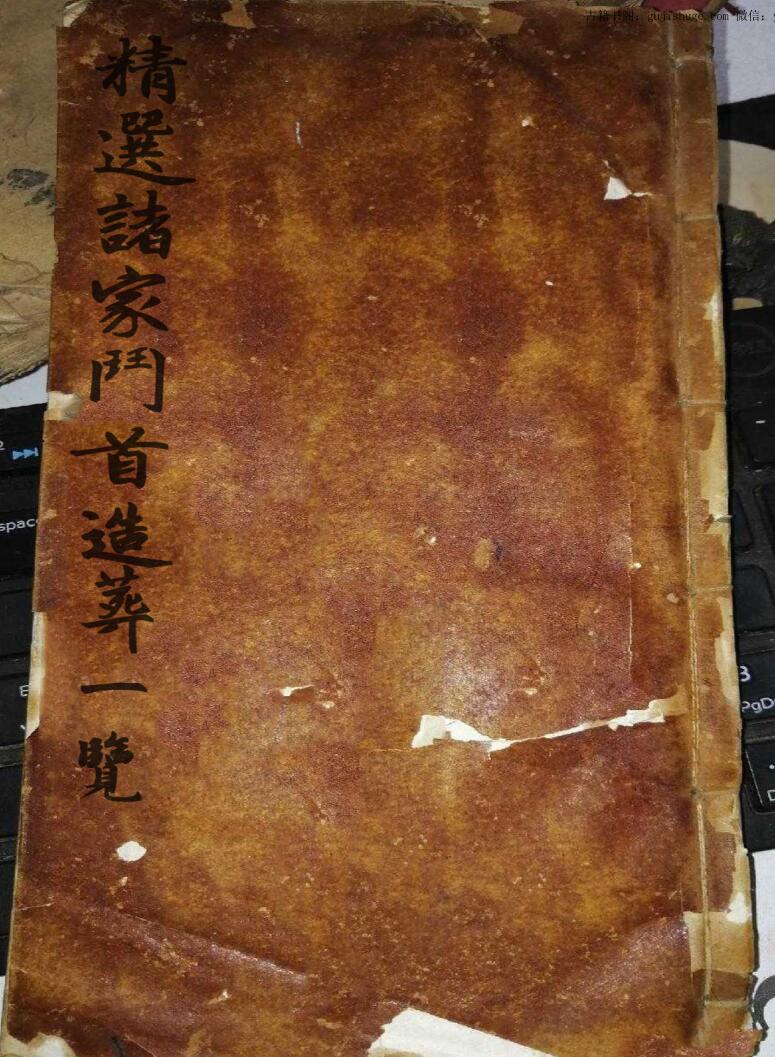 古籍书阁：gujishuge.com 微信：
精選諸家鬥首造葬一覽
space
PgD